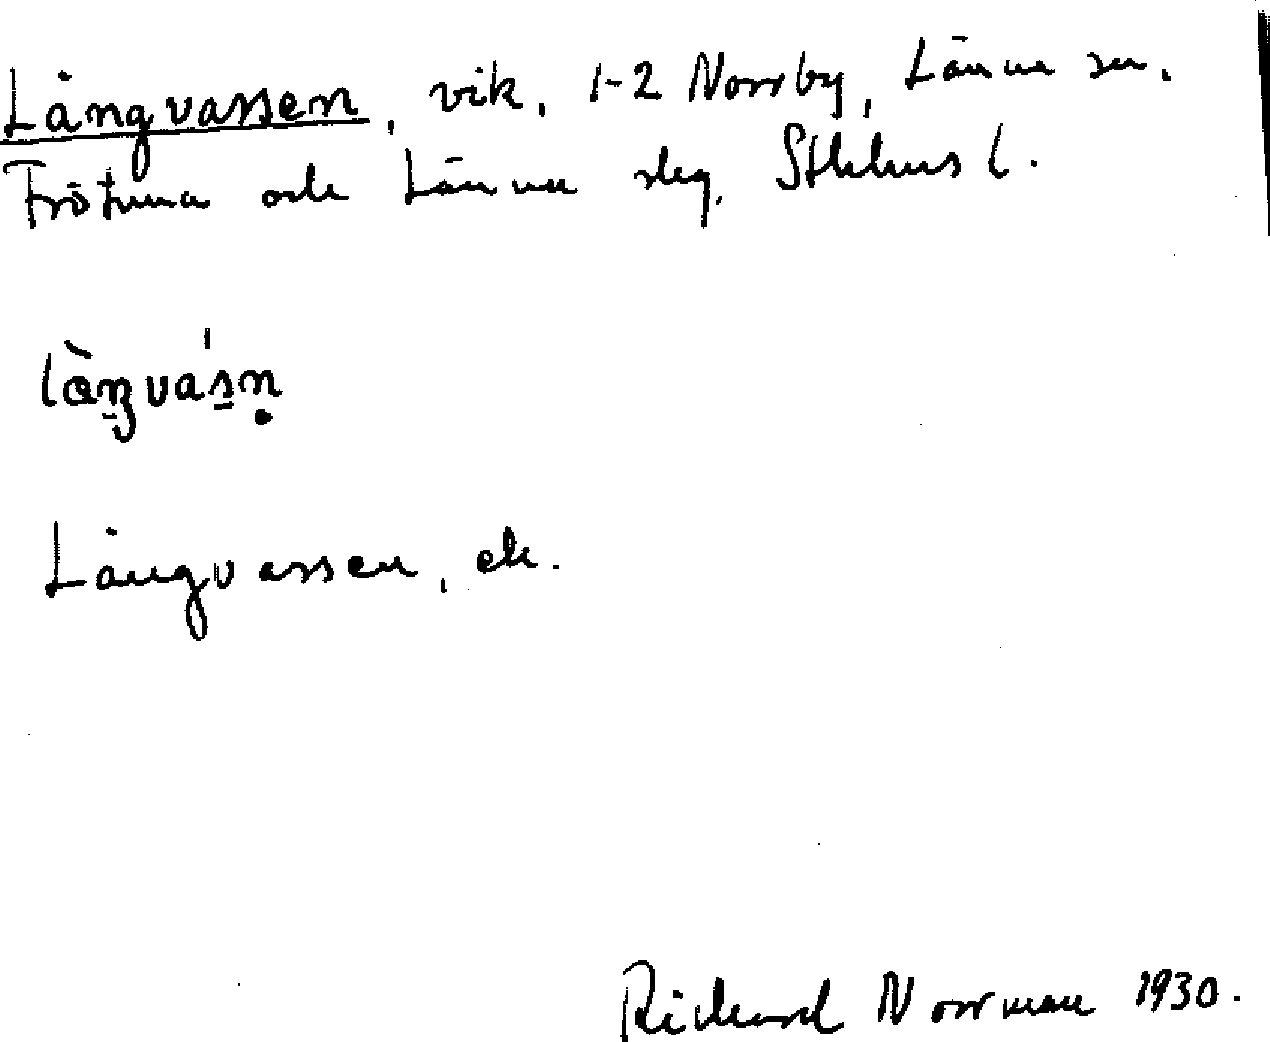 Långvassen, vik, 1-2 Norrby, Länna sn,
Frötuna och Länna slg, Sthlms l.
Långvassen, ek.
Rickard Norrman 1930.